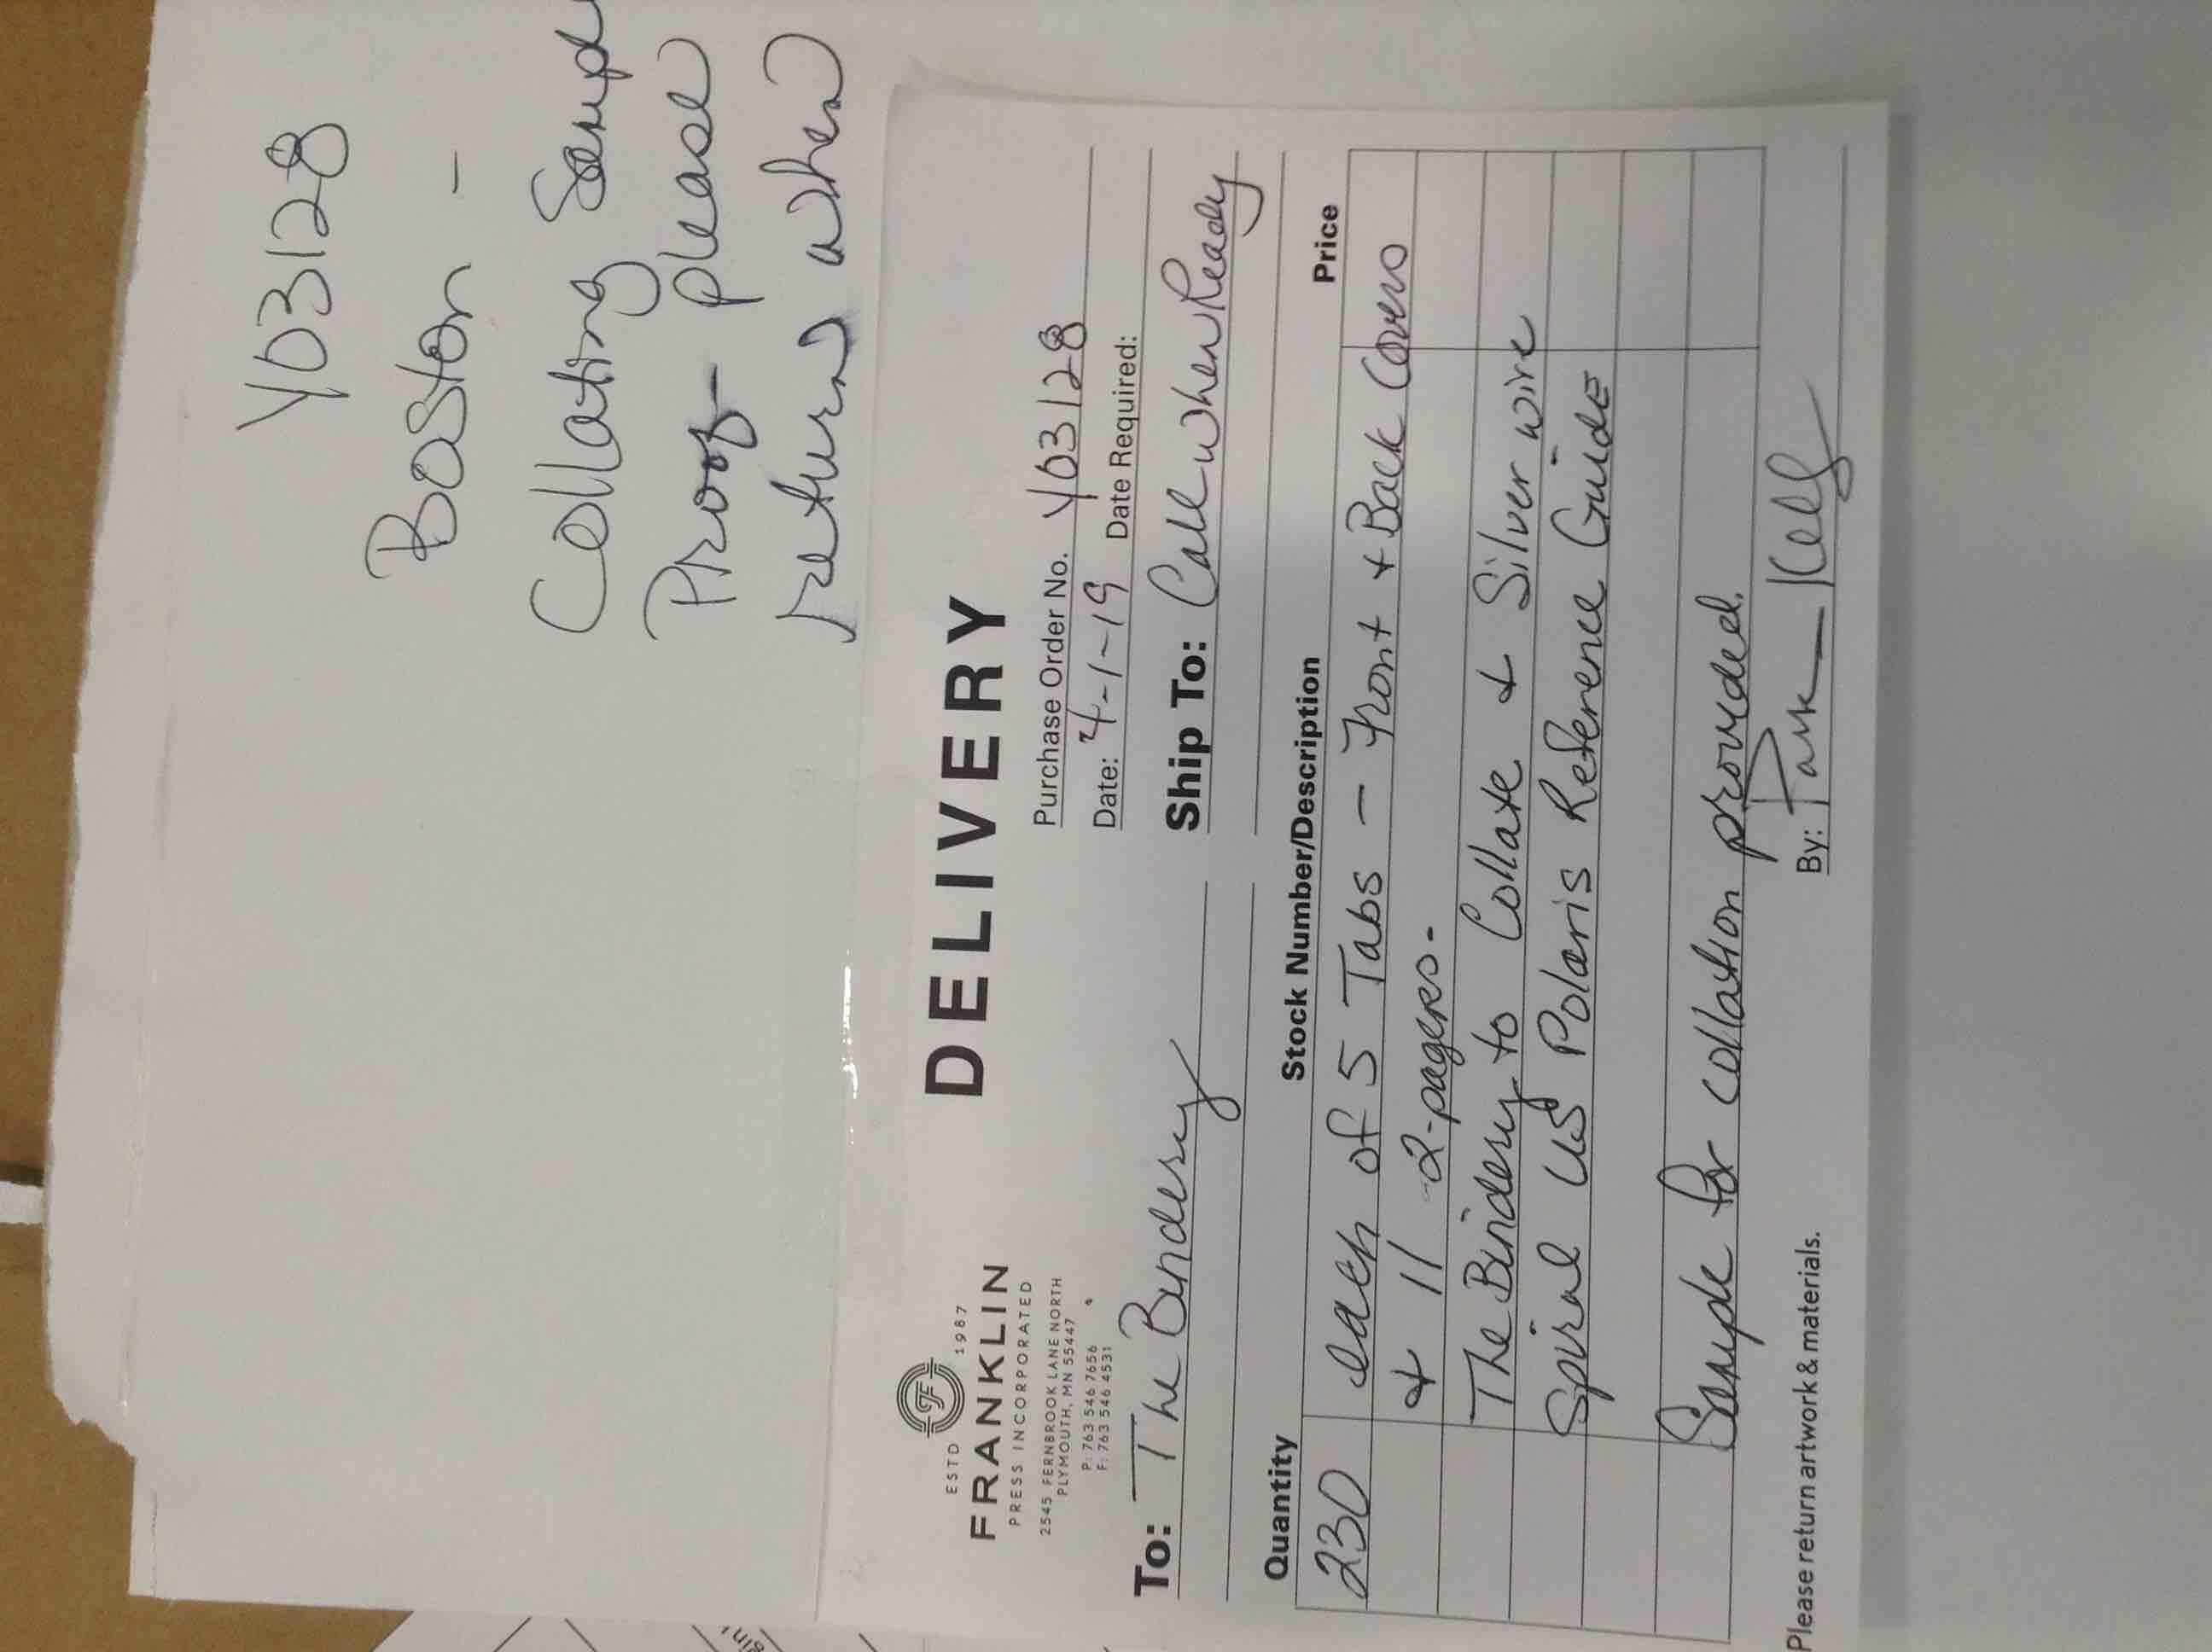 Y03128
Boston -
Collating Samp
Proof - please
return when
ESTD 1987
FRANKLIN
PRESS INCORPORATED
2545 FERNBROOK LANE NORTH
PLYMOUTH, MN 55447
P: 763 546 7656
F: 763 546 4531
DELIVERY
Purchase Order No. Y03128
Date: 4-1-19 Date Required:
To: The Bindery
Ship To: Call when Ready
Quantity Stock Number/Description Price
230 each of 5 Tabs - Front + Back Covers
+ 11 2-pagers.
The Bindery to Collate + Silver wire
Spiral US Polaris Reference Guide
Sample for collation provided.
Please return artwork & materials.
By: